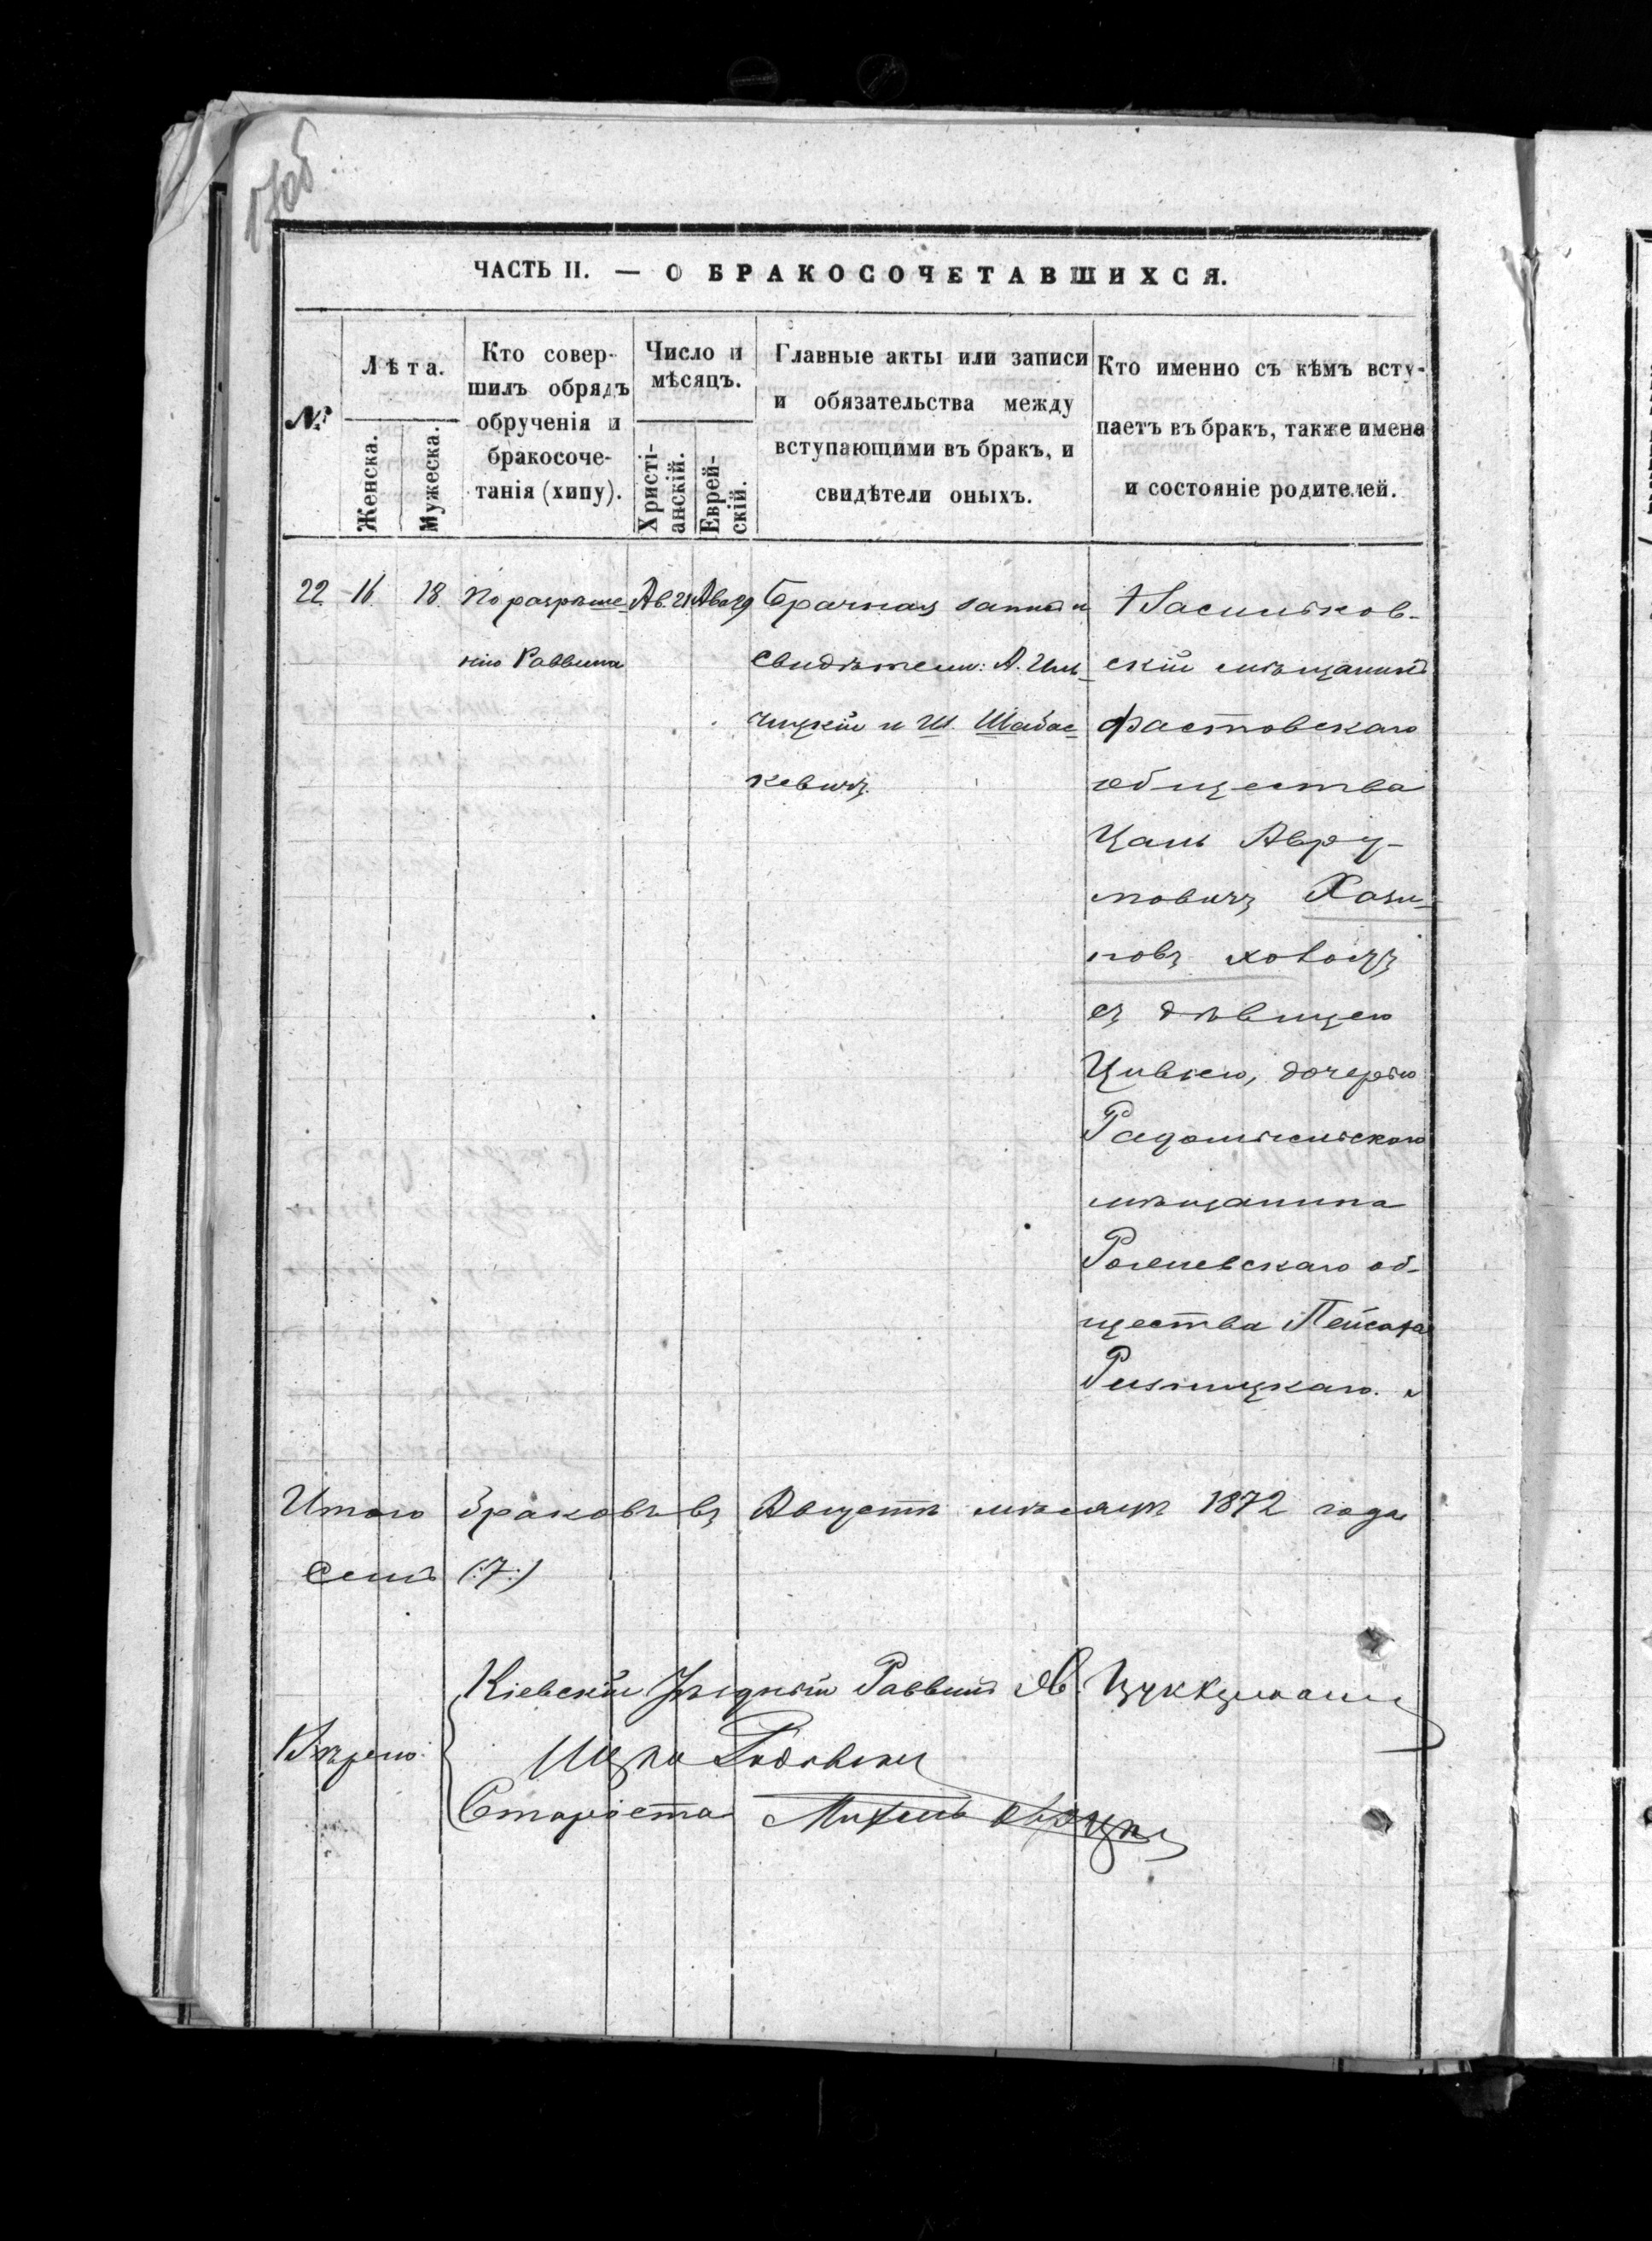 ЧАСТЬ II. — О БРАКОСОЧЕТАВШИХСЯ.
№
Лѣта.
Женска.
Мужеска.
Кто совер-
шилъ обрядъ
обрученія и
бракосоче-
танія (хипу).
Число и
мѣсяцъ.
Христі-
анскій.
Еврей-
скій.
Главные акты или записи
и обязательства между
вступающими въ бракъ, и
свидѣтели оныхъ.
Кто именно съ кѣмъ всту-
паетъ въ бракъ, также имена
и состояніе родителей.
22
16
18
По разрѣше-
нію Раввина
Ав. 21
Ава 29
Брачная запись и
свидѣтели: А.
и Ш. Шабас-
кевичъ.
Васильков-
скій мѣщанинъ
Фастовскаго
общества
Цаль Авру-
мовичъ Хази-
новъ холостъ
съ дѣвицею
Цивьею, дочерью
Радомысльскаго
мѣщанина
общества Пейсаха
Ризницкаго.
Итого браковъ въ Августѣ мѣсяцѣ 1872 года
семь (:7:)
Кіевскій Уѣздный Раввинъ Ав. Цуккерманъ
Вѣрно:
Староста